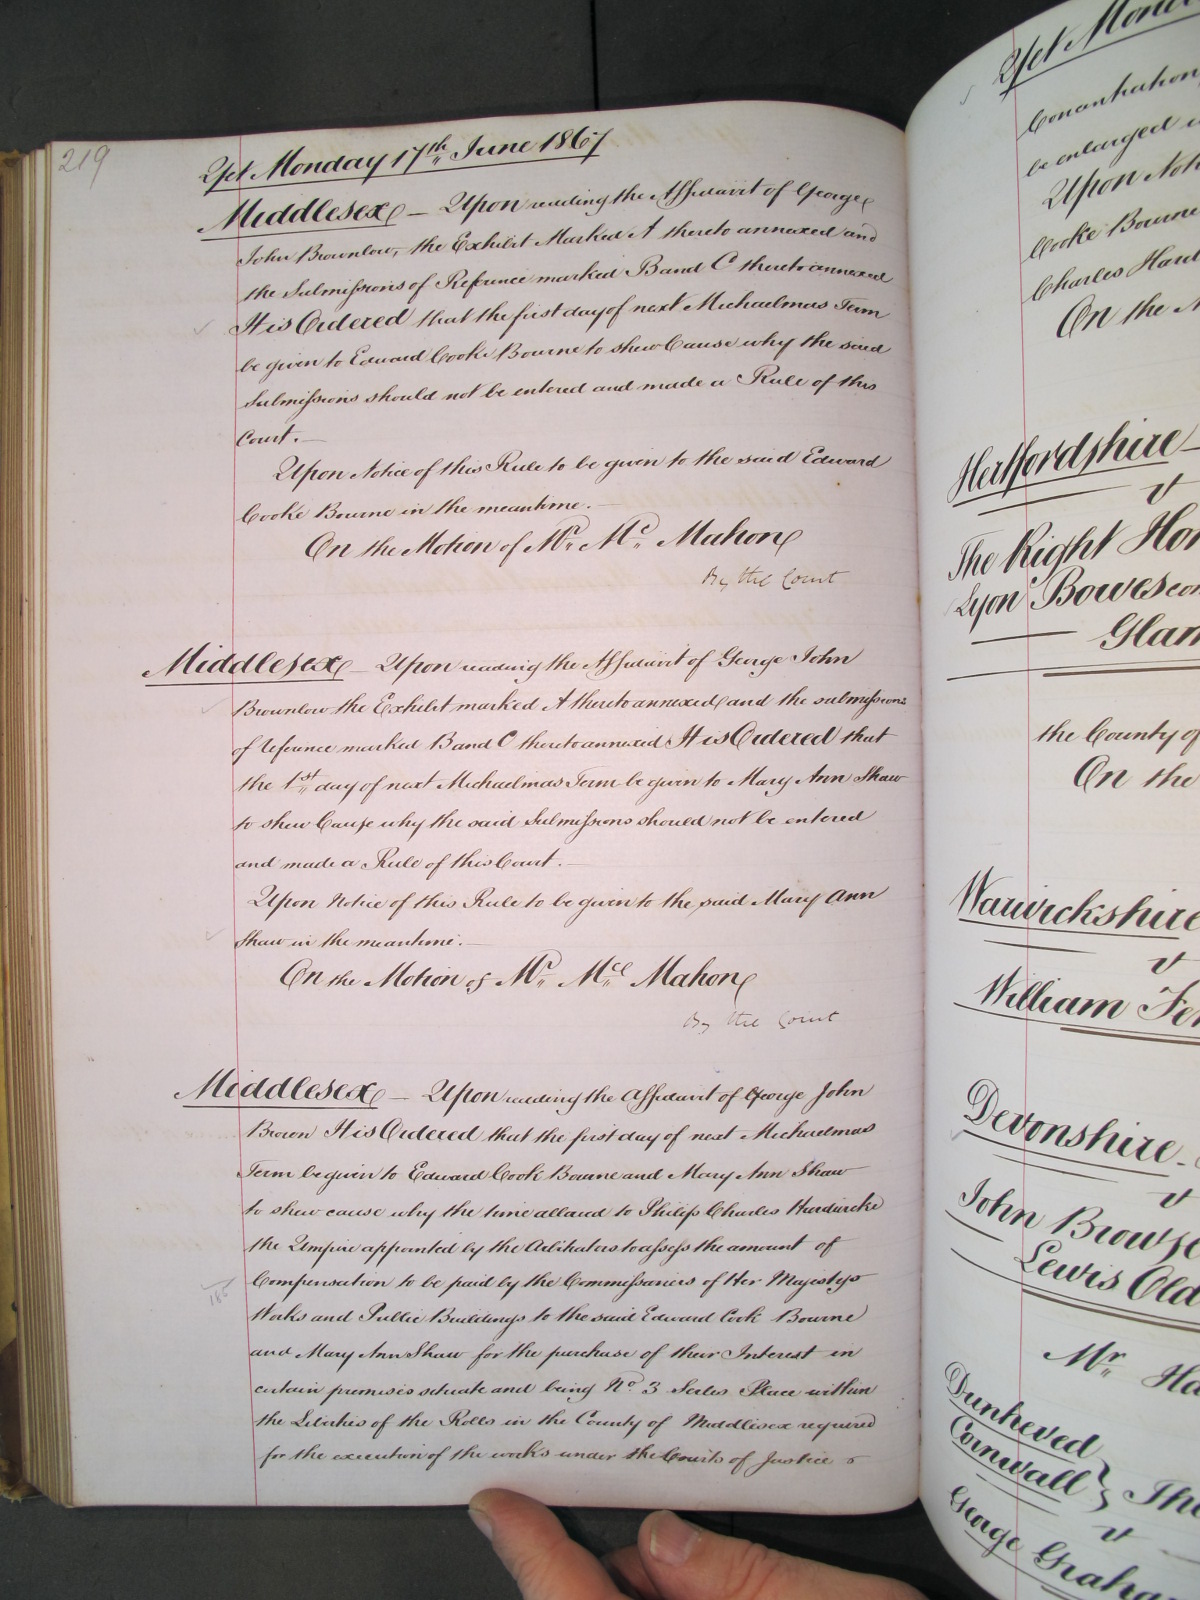 219
Yet Monday 17th June 1867
Middlesex — Upon reading the Affidavit of George
John Brownlow, the Exhibit Marked A thereto annexed and
the Submissions of Reference marked B and C thereto annexed
It is Ordered that the first day of next Michaelmas Term
be given to Edward Cooke Bourne to shew Cause why the said
Submissions should not be entered and made a Rule of this
Court. —
Upon Notice of this Rule to be given to the said Edward
Cooke Bourne in the meantime. —
On the Motion of Mr. Mc. Mahon
By the Court
Middlesex — Upon reading the Affidavit of George John
Brownlow the Exhibit marked A thereto annexed and the submissions
of reference marked B and C thereto annexed It is Ordered that
the 1st day of next Michaelmas Term be given to Mary Ann Shaw
to shew Cause why the said Submissions should not be entered
and made a Rule of this Court. —
Upon Notice of this Rule to be given to the said Mary Ann
Shaw in the meantime. —
On the Motion of Mr. Mc. Mahon
By the Court
Middlesex — Upon reading the Affidavit of George John
Brown It is Ordered that the first day of next Michaelmas
Term be given to Edward Cook Bourne and Mary Ann Shaw
to shew cause why the time allowed to Philip Charles Hardwicke
the Umpire appointed by the Arbitrators to assess the amount of
Compensation to be paid by the Commissioners of Her Majestys
Works and Public Buildings to the said Edward Cook Bourne
and Mary Ann Shaw for the purchase of their Interest in
certain premises situate and being No 3 Serles Place within
the Liberties of the Rolls in the County of Middlesex required
for the execution of the works under the Courts of Justice
Yet Mond
Concentration
be enlarged
Upon Noti
Cooke Bourne
Charles Hard
On the M
Hertfordshire —
v
The Right Hon
Lyon Bowes
Glam
the County of
On the
Warwickshire
v
William Fe
Devonshire —
v
John Browse
Lewis Old
Mr. Ha
Dunheved
Cornwall } The
v
George Graha